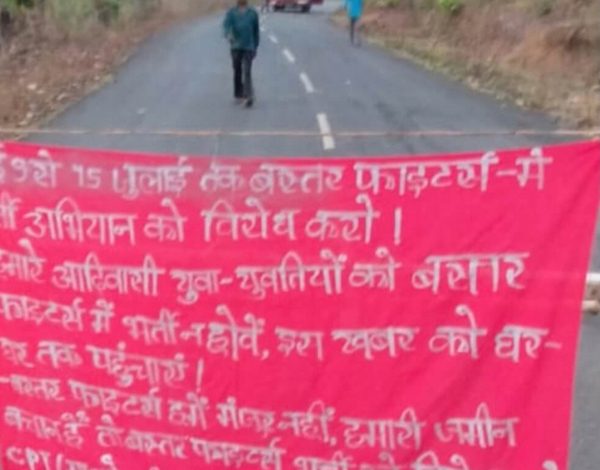 9 से 15 जुलाई तक बस्तर फाइटर्स-मे
अभियान को विरोध करो!
हमारे आदिवासी युवा-युवतियों को बस्तर
फाइटर्स में भर्ती न होवें, इस खबर को घर-
घर तक पहुंचाएं!
बस्तर फाइटर्स हमें मंजूर नहीं, हमारी जमीन
बचाना है तो बस्तर फाइटर्स
CPI